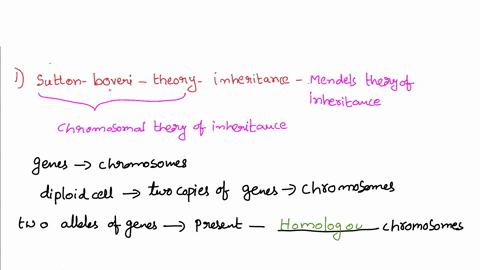 1) Sutton-boveri-theory-inheritance - Mendels theryof
inheritance
Chromosomal thery of inheritance
genes → chromosomes
diploid cell → two copies of genes → chromosomes
two alleles of genes → present - Homologou chromosomes